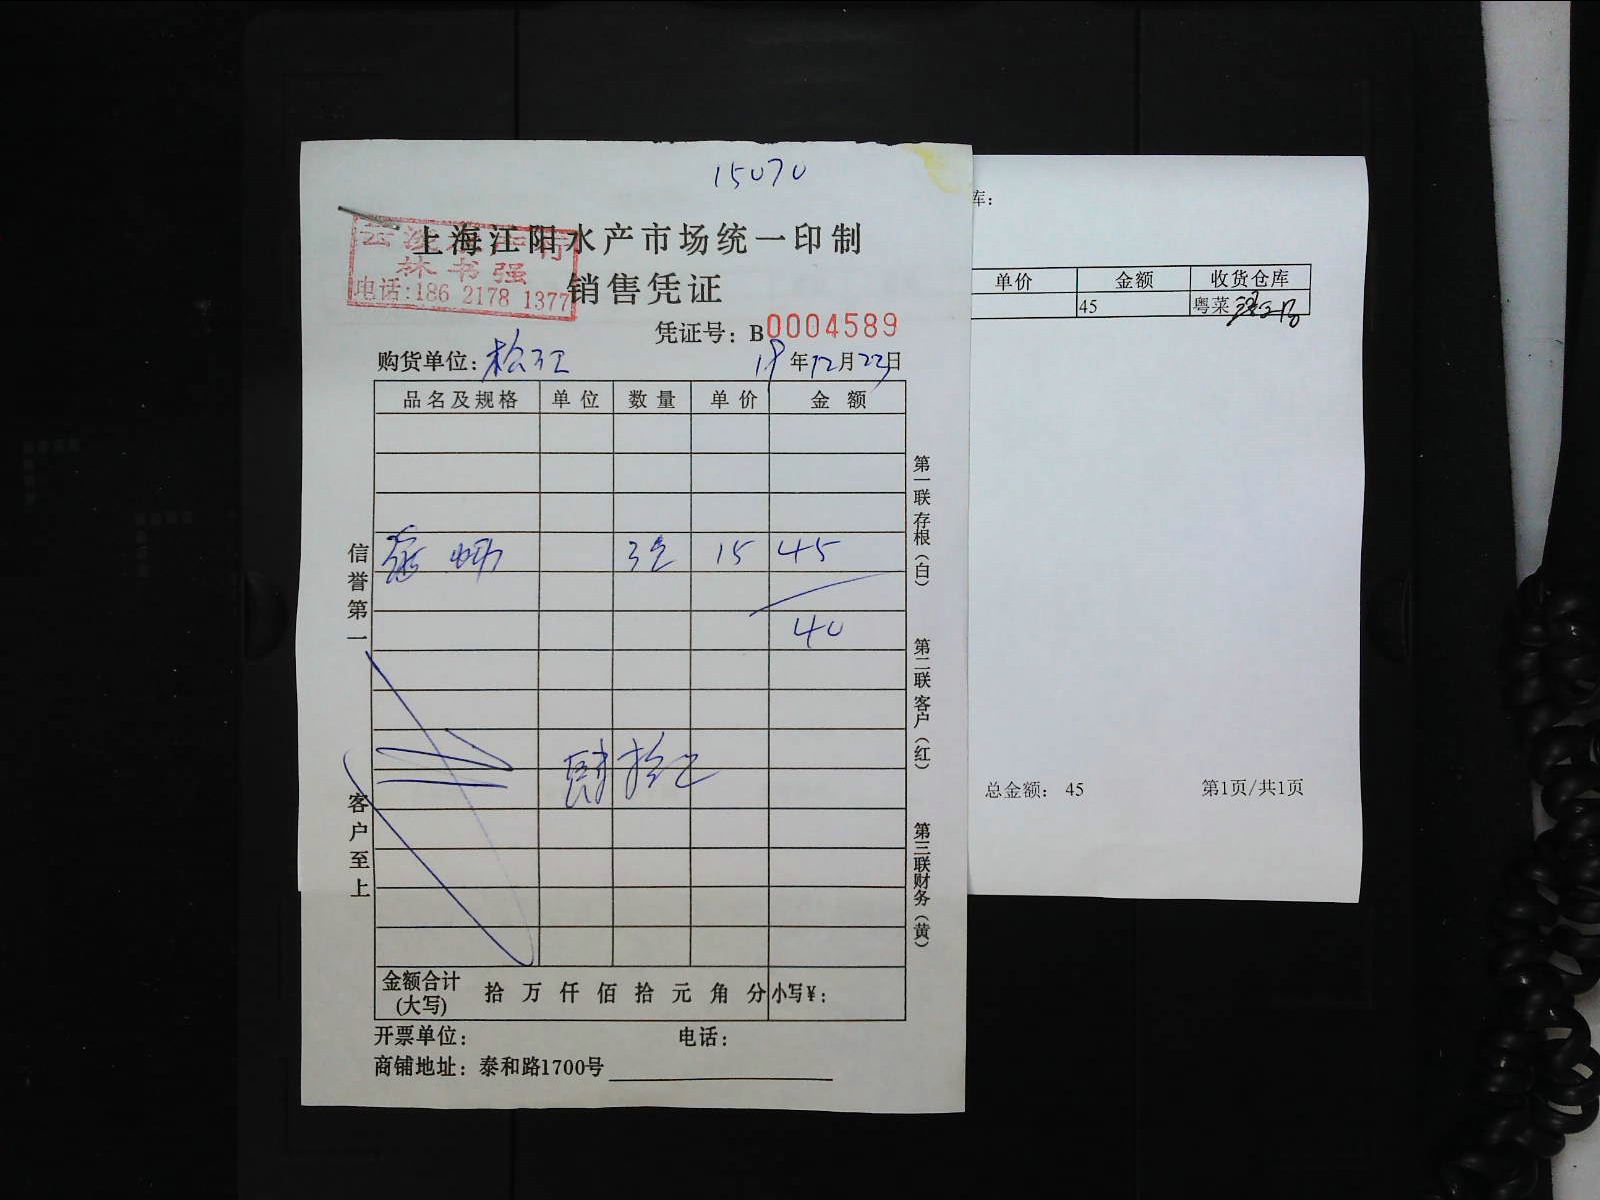 15070
上海江阳水产市场统一印制
林书强
电话:186 2178 1377
销售凭证
凭证号: B0004589
购货单位: 松江 18年12月22日
品名及规格 单位 数量 单价 金额
15 45
40
肆拾
金额合计(大写) 拾 万 仟 佰 拾 元 角 分 小写¥:
开票单位: 电话:
商铺地址: 泰和路1700号
信誉第一
客户至上
第一联存根(白)
第二联客户(红)
第三联财务(黄)
库:
单价 金额 收货仓库
45 粤菜
总金额: 45 第1页/共1页